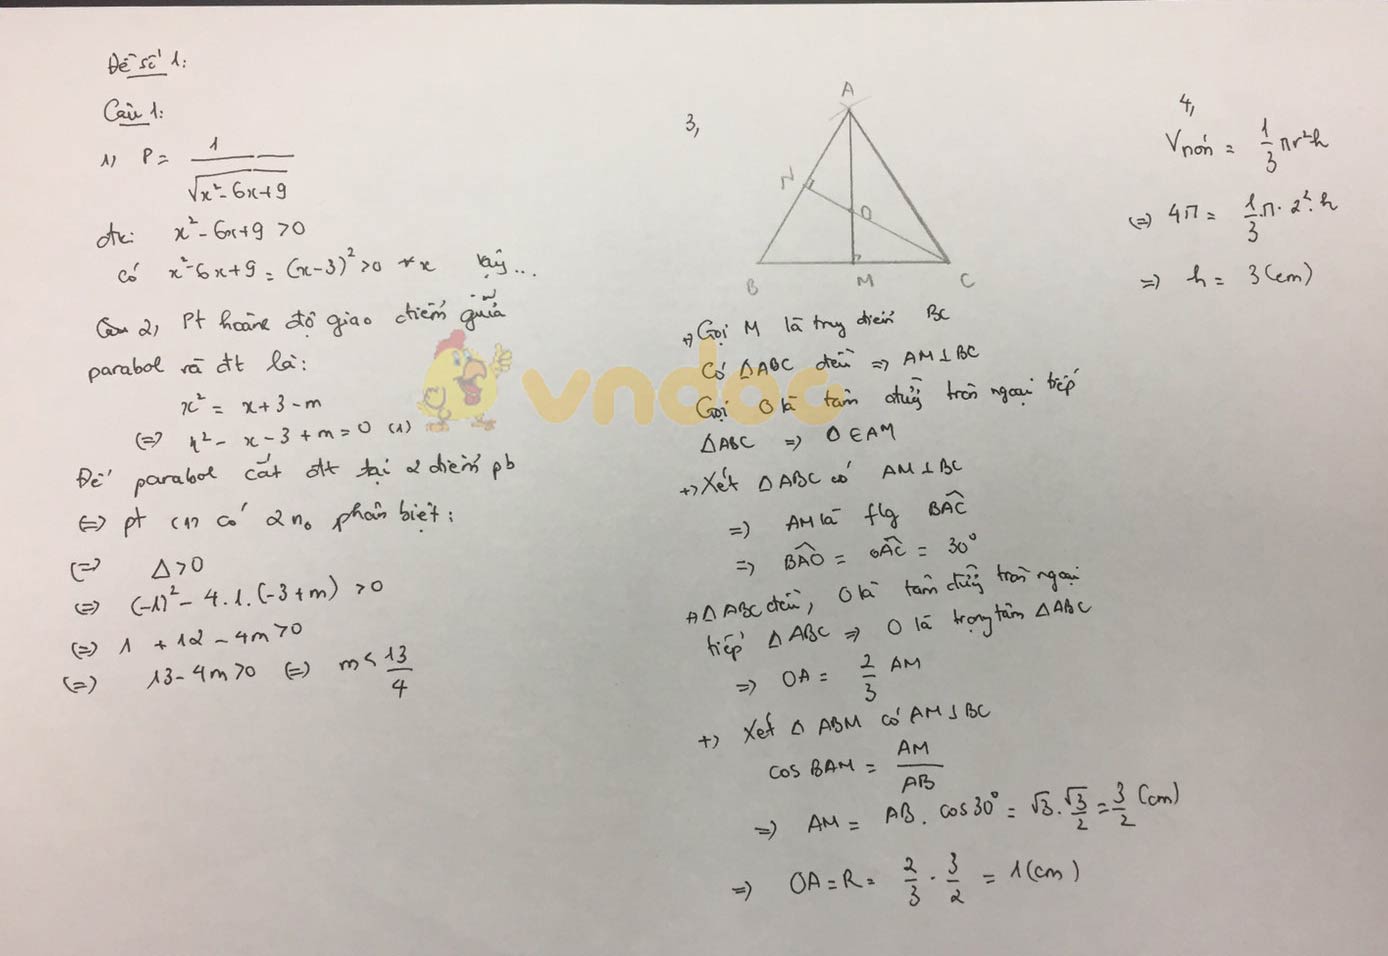 Đề số 1:
Câu 1:
1) P = 1/√(x² - 6x + 9)
đk: x² - 6x + 9 > 0
Có x² - 6x + 9 = (x - 3)² > 0 ∀x
Câu 2, Pt hoành độ giao điểm giữa
parabol và đt là:
x² = x + 3 - m
(=) x² - x - 3 + m = 0 (1)
Để parabol cắt đt tại 2 điểm pb
(=) pt (1) có 2 no phân biệt:
(=) Δ > 0
(=) (-1)² - 4.1.(-3 + m) > 0
(=) 1 + 12 - 4m > 0
(=) 13 - 4m > 0 (=) m < 13/4
3,
A
N
O
B
M
C
+) Gọi M là trung điểm BC
Có ΔABC đều => AM ⊥ BC
Gọi O là tâm đường tròn ngoại tiếp
ΔABC => O ∈ AM
+) Xét ΔABC có AM ⊥ BC
=) AM là flg BAC^
=) BAO^ = OAC^ = 30°
+) ΔABC đều, O là tâm đường tròn ngoại
tiếp ΔABC => O là trọng tâm ΔABC
=) OA = 2/3 AM
+) Xét Δ ABM có AM ⊥ BC
cos BAM = AM/AB
=) AM = AB . cos30° = √3 . √3/2 = 3/2 (cm)
=) OA = R = 2/3 . 3/2 = 1 (cm)
4,
Vnón = 1/3 πr²h
(=) 4π = 1/3 . π . 2² . h
=) h = 3 (cm)
vndoc